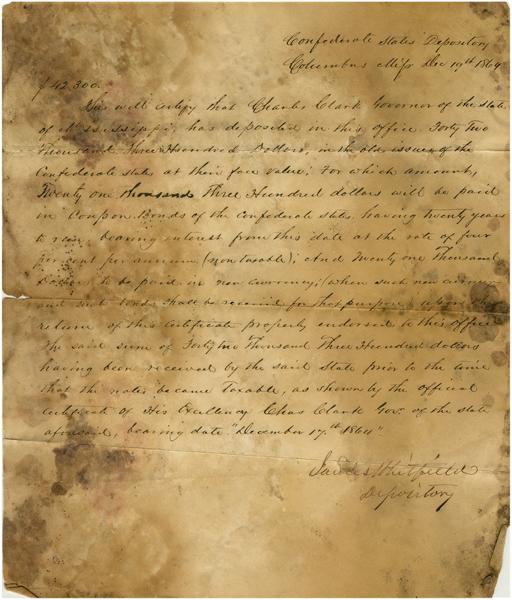 Confederate States Depository
Columbus Miss Dec 19th 1864
$42,300.
This will certify that Charles Clark Governor of the state
of Mississippi, has deposited in this office Forty Two
Thousand Three Hundred Dollars, in the old issues of the
Confederate states at their face value; For which amount,
Twenty one thousand Three Hundred dollars will be paid
in Coupon Bonds of the confederate states, having twenty years
to run, bearing interest from this date at the rate of four
per cent per annum (non taxable); And Twenty one Thousand
Dollars to be paid in new currency; (when such new currency
and such bonds shall be received for that purpose) upon the
return of this certificate properly endorsed to this office
The said sum of Forty two Thousand Three Hundred dollars
having been received by the said State prior to the time
that the notes became taxable, as shown by the official
certificate of His Excellency Chas Clark Gov. of the state
aforesaid, bearing date "December 17th 1864"
James Whitfield
Depository